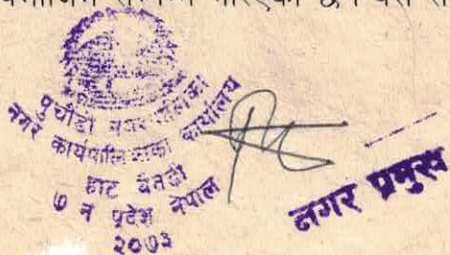 पुर्चौडी नगर पालिका
नगर कार्यपालिकाको कार्यालय
हाट बैतडी
७ नं प्रदेश नेपाल
२०७३
नगर प्रमुख